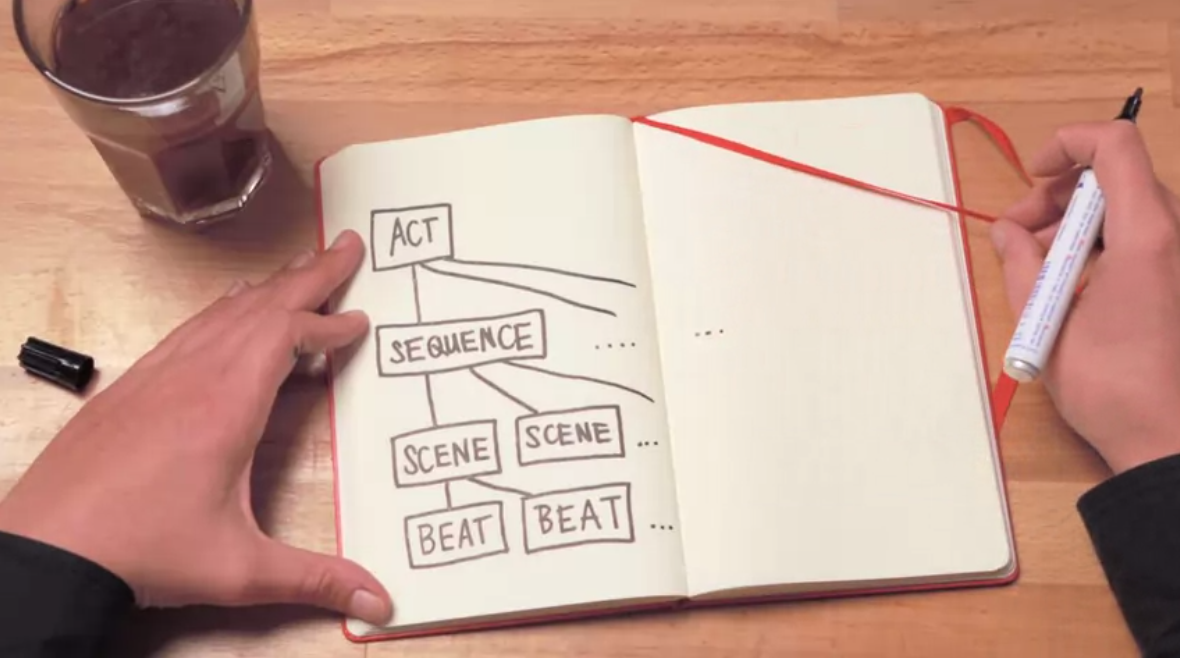 ACT
SEQUENCE
....
...
SCENE
SCENE
...
BEAT
BEAT
...